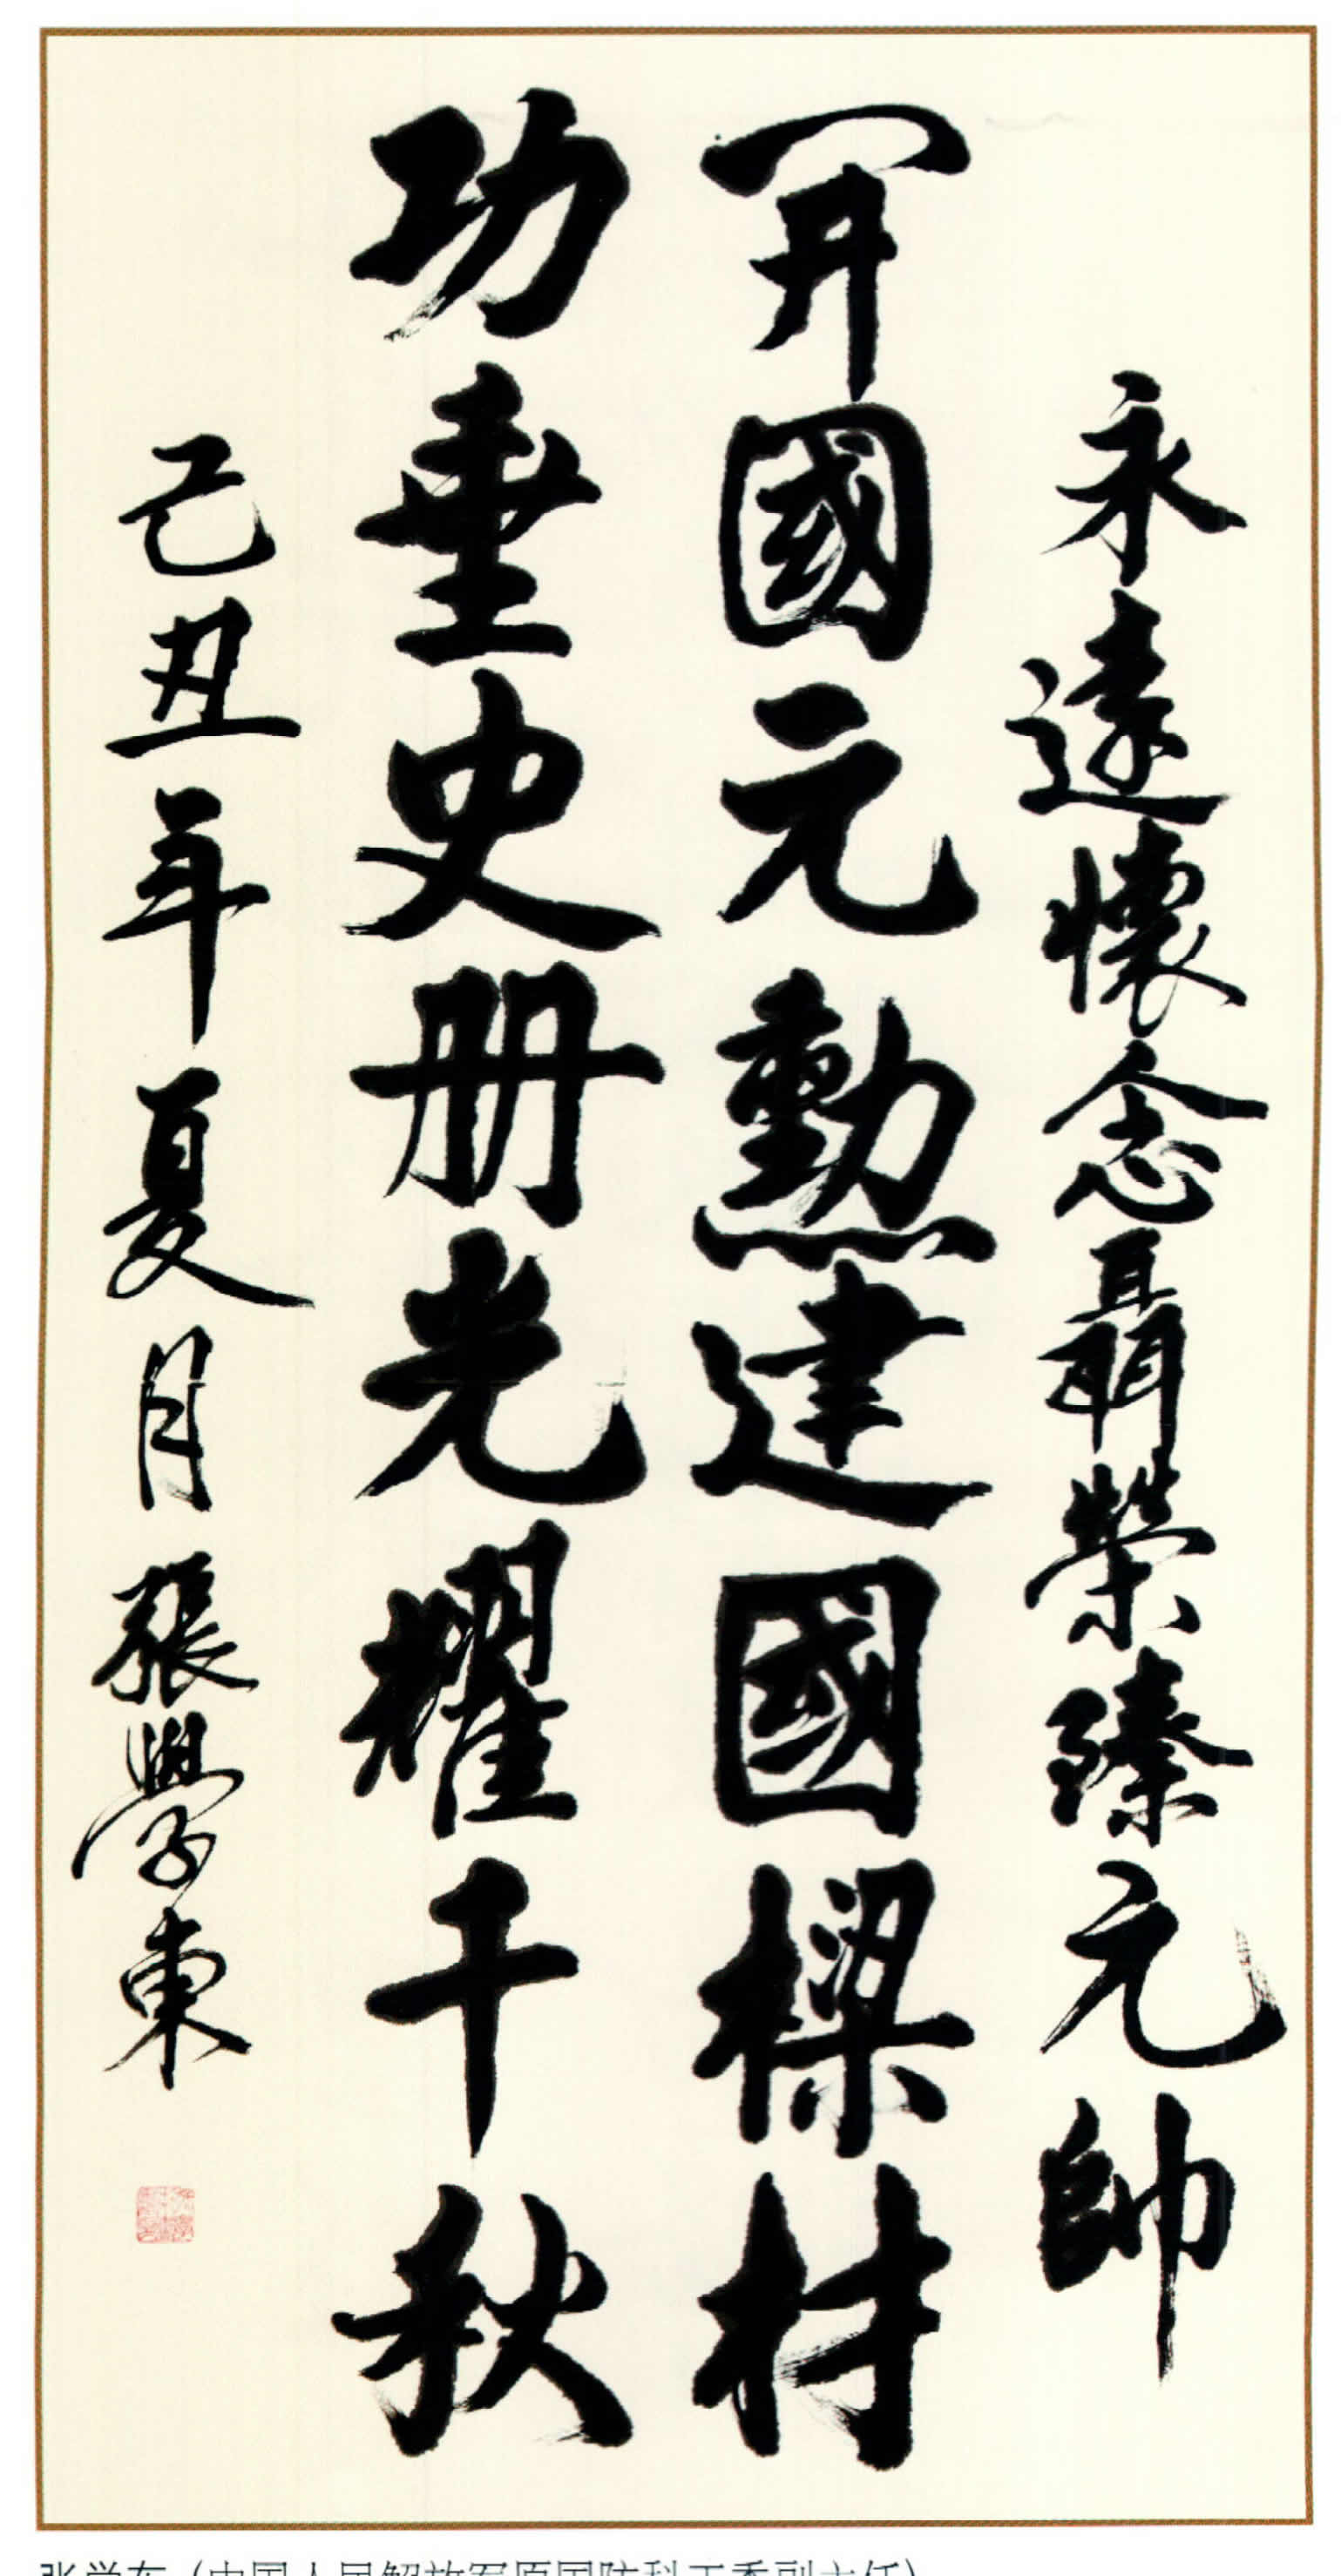 永遠懷念聶榮臻元帥
開國元勳建國樑材
功垂史册光耀千秋
己丑年夏月張學東
张学东（中国人民解放军原国防科工委副主任）